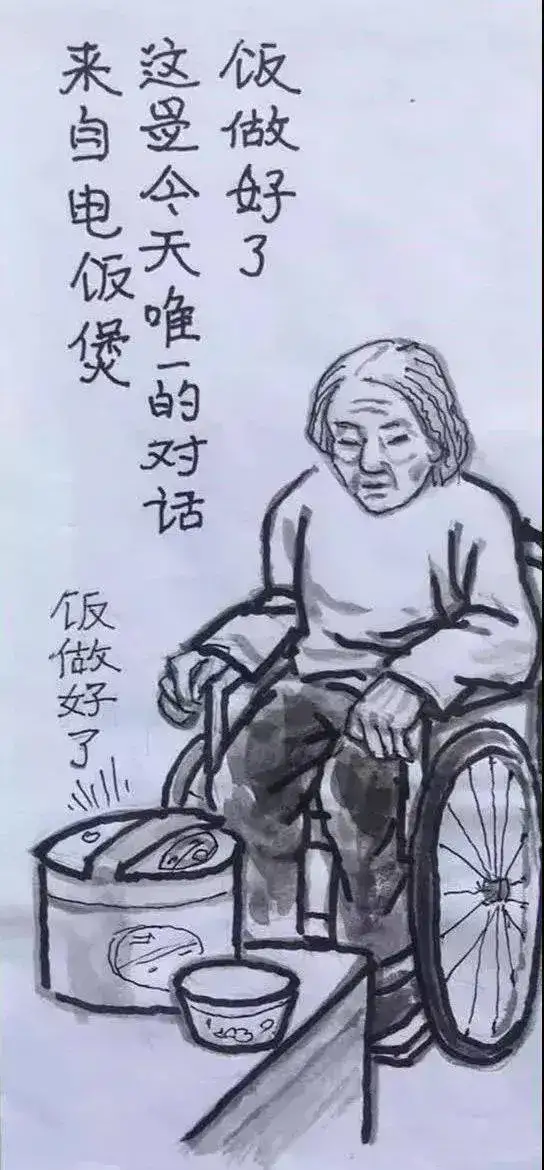 饭做好了
这是今天唯一的对话
来自电饭煲
饭做好了